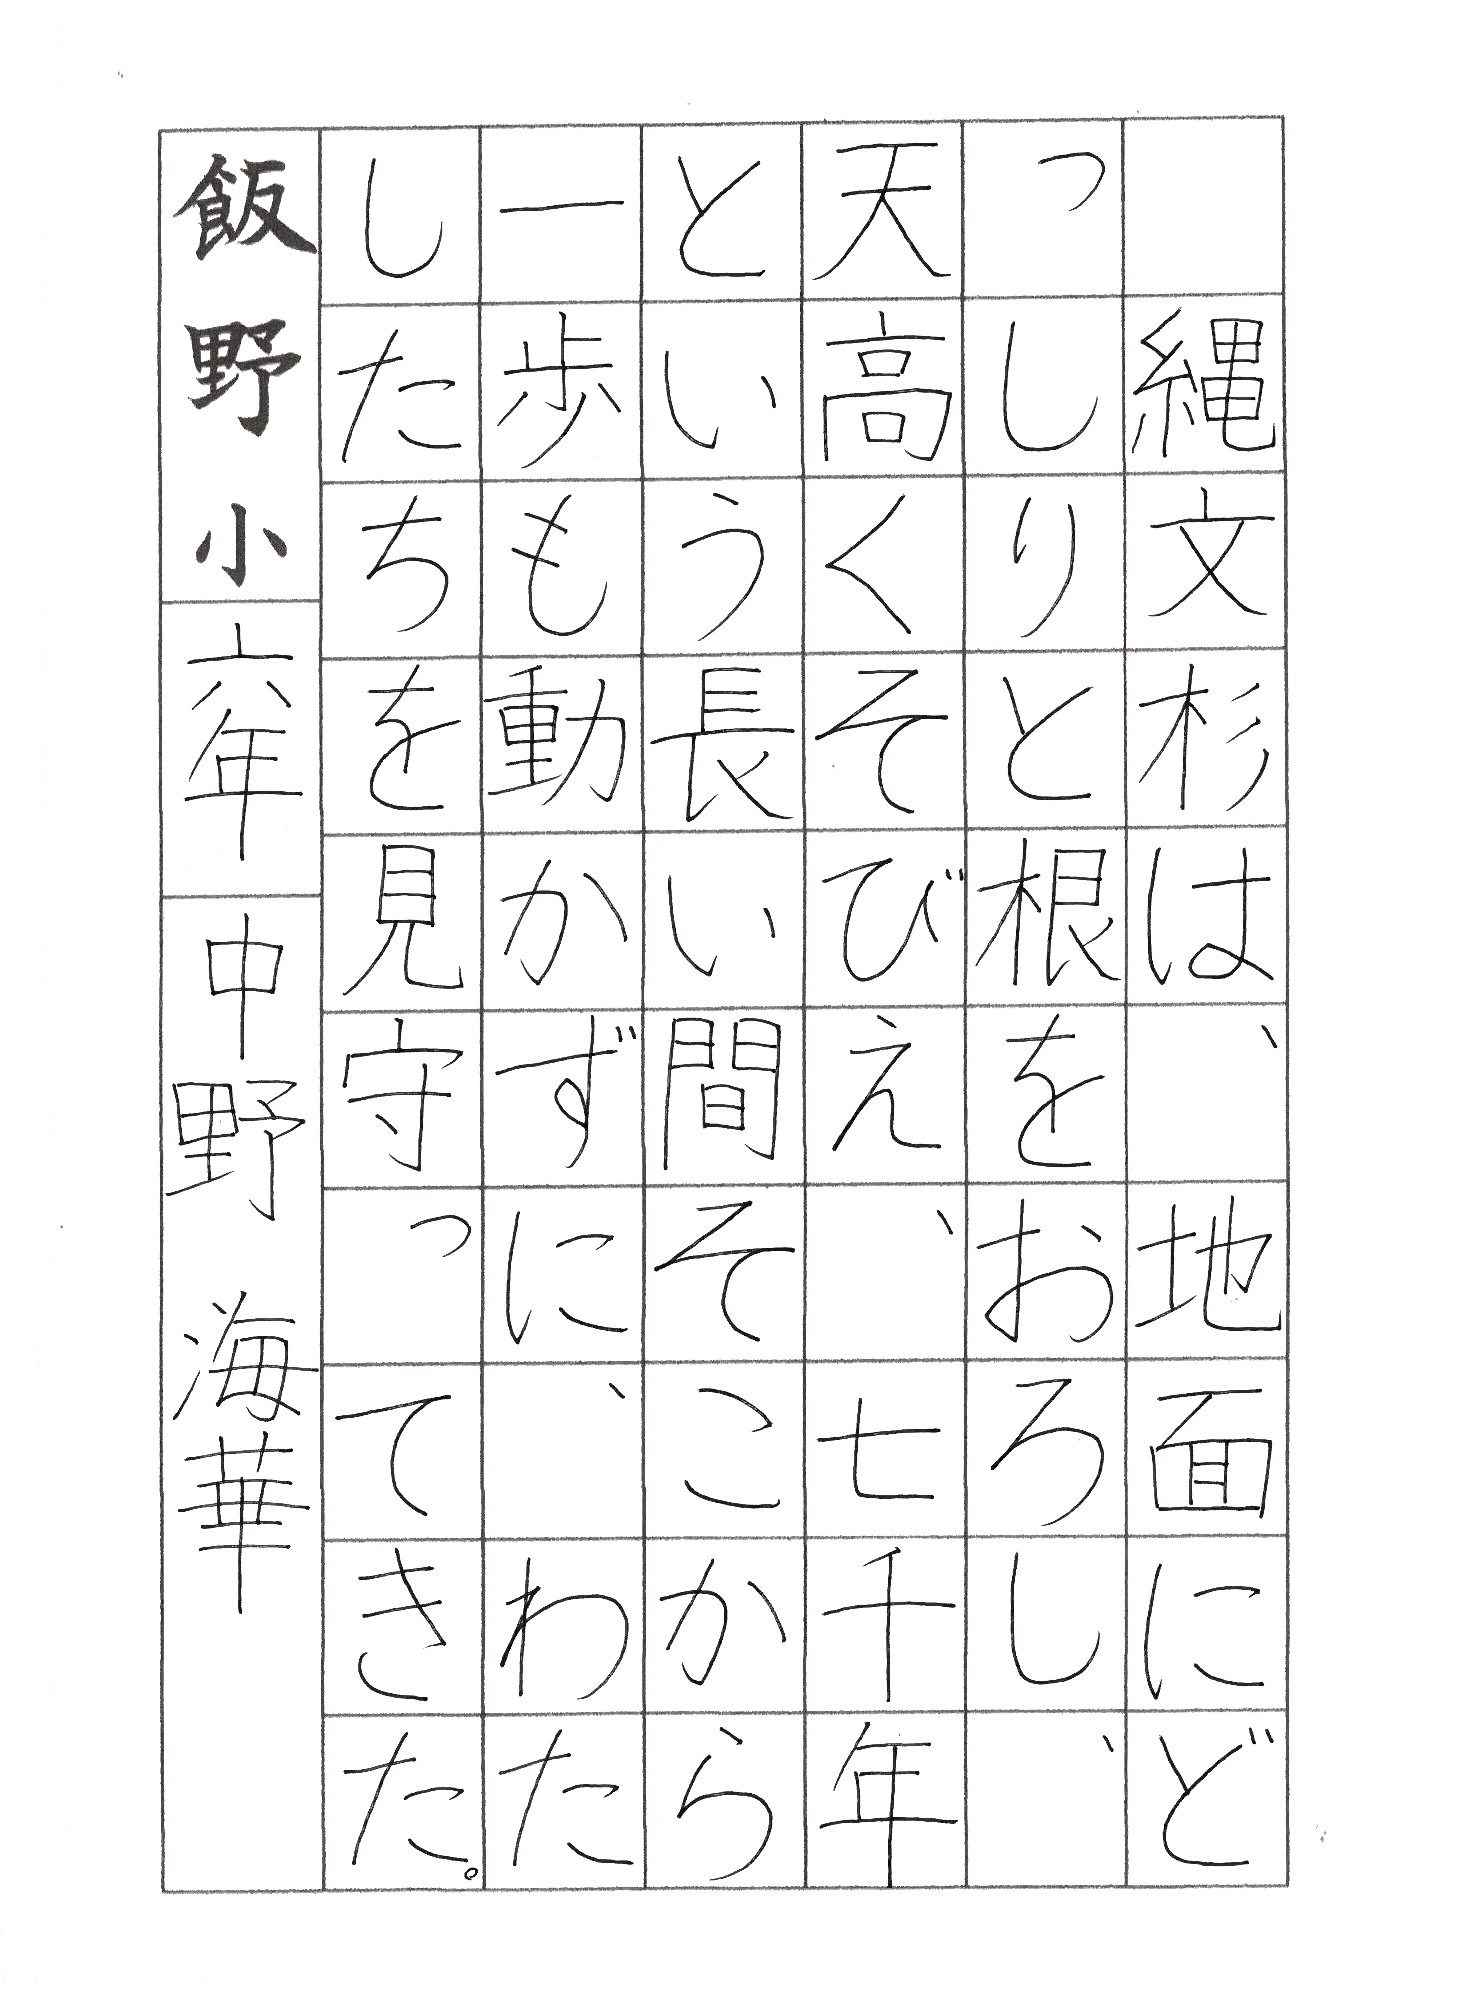 縄文杉は、地面にど
っしりと根をおろし、
天高くそびえ、七千年
という長い間そこから
一歩も動かずに、わた
したちを見守ってきた。
飯野小 六年 中野 海華